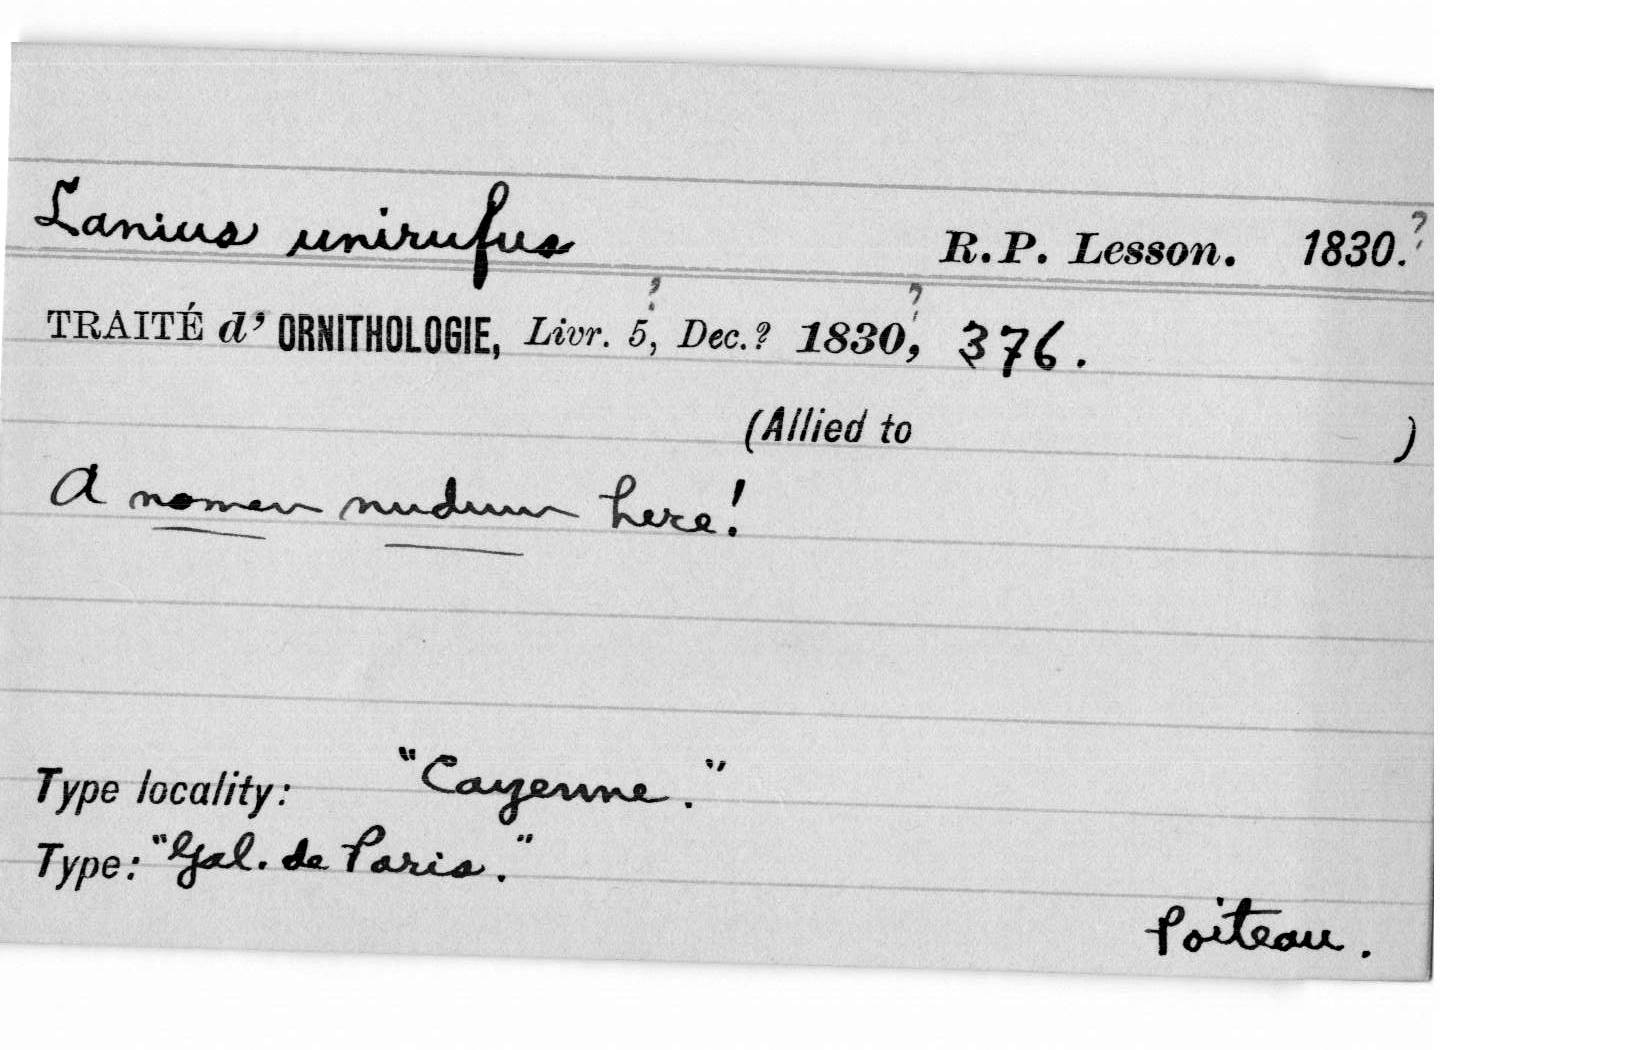 Lanius unirufus R.P. Lesson. 1830.?
TRAITÉ d' ORNITHOLOGIE, Livr. 5?, Dec.? 1830?, 376.
(Allied to )
A nomen nudum here!
Type locality: "Cayenne."
Type: "Gal. de Paris."
Poiteau.